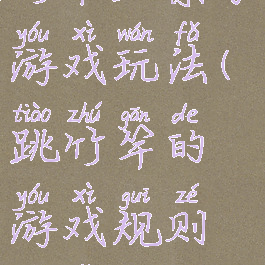 yóu xì wán fǎ
游戏玩法(
tiào zhú gān de
跳竹竿的
yóu xì guī zé
游戏规则